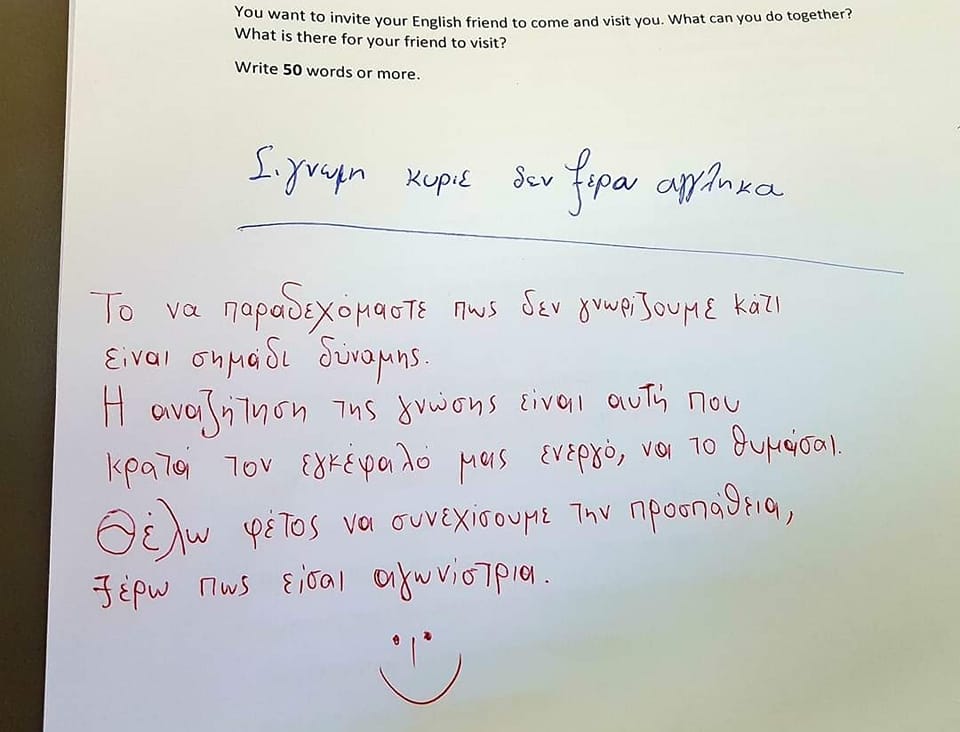 You want to invite your English friend to come and visit you. What can you do together?
What is there for your friend to visit?
Write 50 words or more.
Σιγνωμη κυριε δεν ξερα αγγληκα
Το να παραδεχόμαστε πως δεν γνωρίζουμε κάτι
είναι σημάδι δύναμης.
Η αναζήτηση της γνώσης είναι αυτή που
κρατά τον εγκέφαλό μας ενεργό, να το θυμάσαι.
Θέλω φέτος να συνεχίσουμε την προσπάθεια,
ξέρω πως είσαι αγωνίστρια.